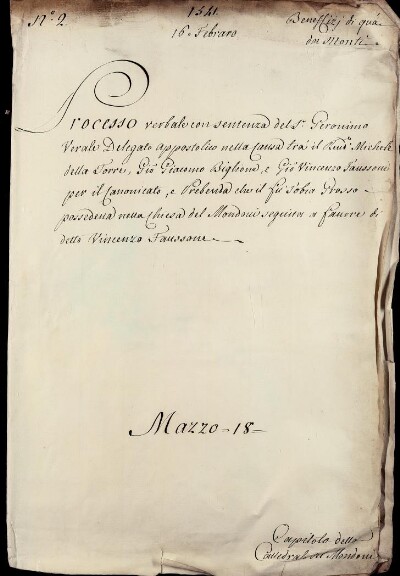 N.º 2.
1541.
16. Febraro
Beneffizj di quà
da Monti.
Processo verbale con sentenza del S.r Geronimo
Verale Delegato appostolico nella Causa trà il Rev.do Michele
della Torre, Gio Giacomo Biglione, e Gio Vincenzo Faussone
per il Canonicato, e Prebenda che il fù Grosso
possedeva nella Chiesa del Mondovì seguita a favore di
detto Vincenzo Faussone.
Mazzo - 18 -
Capitolo della
Cattedrale del Mondovì